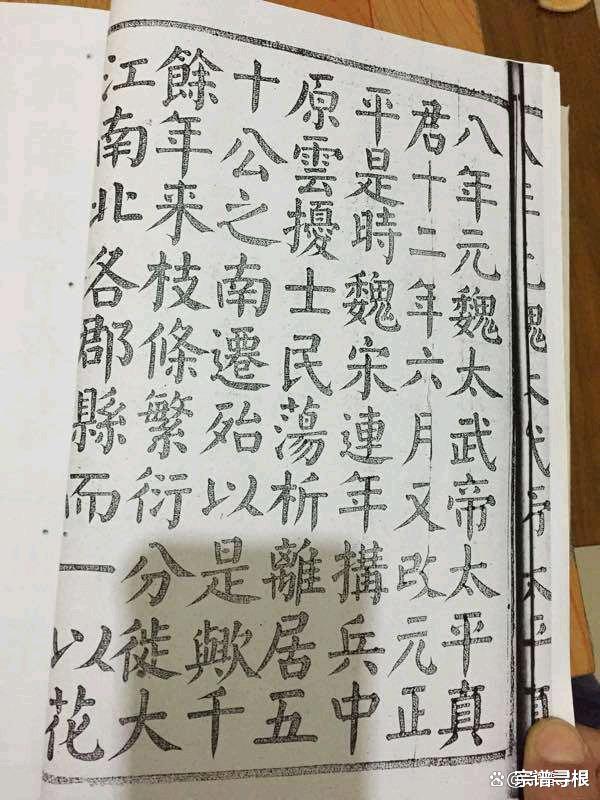 八年元魏太武帝太平真
君十二年六月又改元正
平是時魏宋連年搆兵中
原雲擾士民蕩析離居五
十公之南遷殆以是歟千
餘年来枝條繁衍分徙大
江南北各郡縣而一以花
宗谱寻根